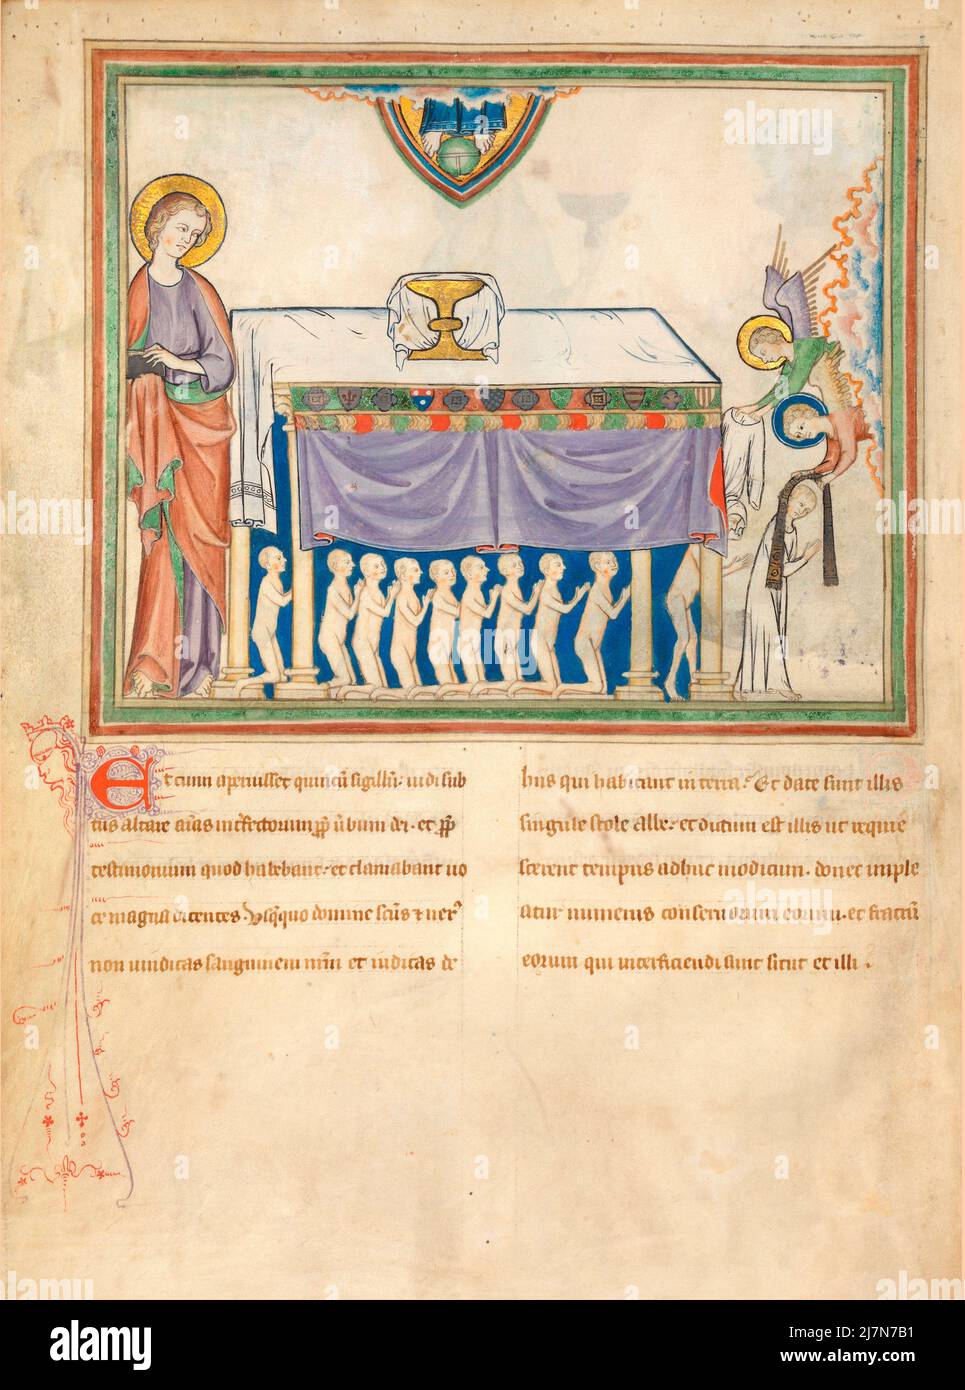 Et cum aperuisset quintū sigillū. uidi sub
tus altare aīas int̄fectorum ꝓpꝉ ūbum dei. et ꝓpꝉ
testimonium quod habebant. et clamabant uo
ce magna dicentes. Vsq̄quo domine scūs ⁊ uerꝰ
non uindicas sanguinem nr̄m et iudicas de
hiis qui habitant in terra. Et date sunt illis
singule stole albe. et dictum est illis ut requie
scerent tempus adhuc modicum. donec imple
atur numerus conseruorum eorum. et fratrū
eorum qui interficiendi sunt sicut et illi.
alamy
Image ID: 2J7N7B1
www.alamy.com